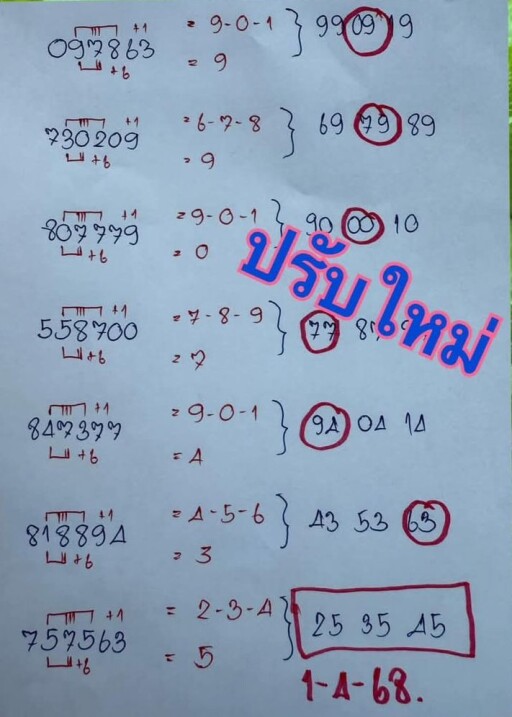 +1 = 9-0-1 } 99 09 19
097863
+6 = 9
+1 = 6-7-8 } 69 79 89
730209
+6 = 9
+1 = 9-0-1 } 90 00 10
807779
+6 = 0
ปรับใหม่
+1 = 7-8-9 } 77 87
558700
+6 = 7
+1 = 9-0-1 } 94 04 14
847377
+6 = 4
+1 = 4-5-6 } 43 53 63
818894
+6 = 3
+1 = 2-3-4 } 25 35 45
757563
+6 = 5
1-4-68.